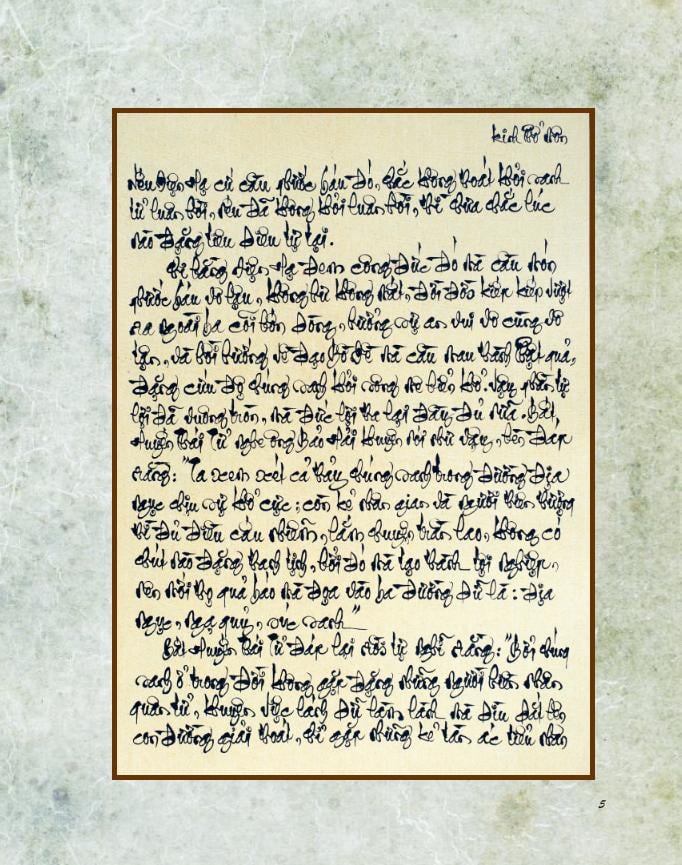 Kinh Bổn Nôn
Nếu Điện Hạ cứ cầu phước báu đó, chắc không thoát khỏi sanh
tử luân hồi, nếu đã không khỏi luân hồi, thì chưa chắc lúc
nào đặng tiêu diêu tự tại.
Ví bằng Điện Hạ đem công đức đó mà cầu món
phước báu vô lậu, không hư không mất, đời đời kiếp kiếp vượt
ra ngoài ba cõi bốn dòng, hưởng sự an vui vô cùng vô
tận, và hồi hướng về đạo Bồ Đề mà cầu mau thành Phật quả,
đặng cứu độ chúng sanh khỏi sông mê biển khổ. Vậy phần tự
lợi đã vuông tròn, mà đức lợi tha lại đầy đủ nữa. Bất
Huyền Thái Tử nghe ông Bảo Hải khuyên nói như vậy, bèn đáp
rằng: "Ta xem xét cả thảy chúng sanh trong đường địa
ngục chịu sự khổ cực; còn kẻ nhân gian và người thiên thượng
thì đủ điều cấu nhiễm, lắm chuyện trần lao, không có
chút nào đặng thanh tịnh, bởi đó mà tạo thành tội nghiệp,
nên nỗi thọ quả báo mà đọa vào ba đường dữ là: địa
ngục, ngạ quỷ, súc sanh"
Bất Huyền Thái Tử đáp lại rồi tự nghĩ rằng: "Bởi chúng
sanh ở trong đời không gặp đặng những người hiền nhân
quân tử, khuyên việc lành dữ làm lành mà dìu dắt lên
con đường giải thoát, chỉ gặp những kẻ tàn ác tiểu nhân
5